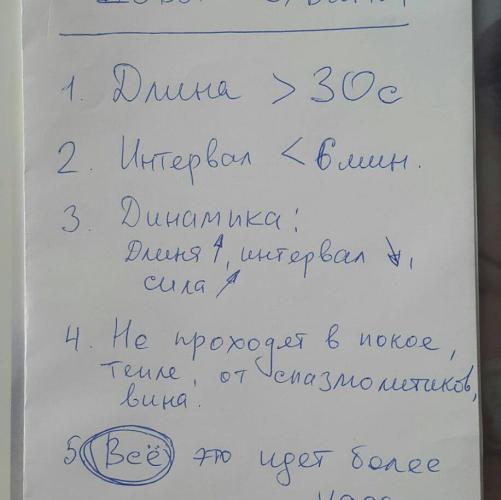 1. Длина > 30с
2. Интервал < 6 мин.
3. Динамика:
Длиня ↑, интервал ↘,
сила ↗
4. Не проходят в покое,
тепле, от спазмолитиков,
вина.
5 Всё это идет более